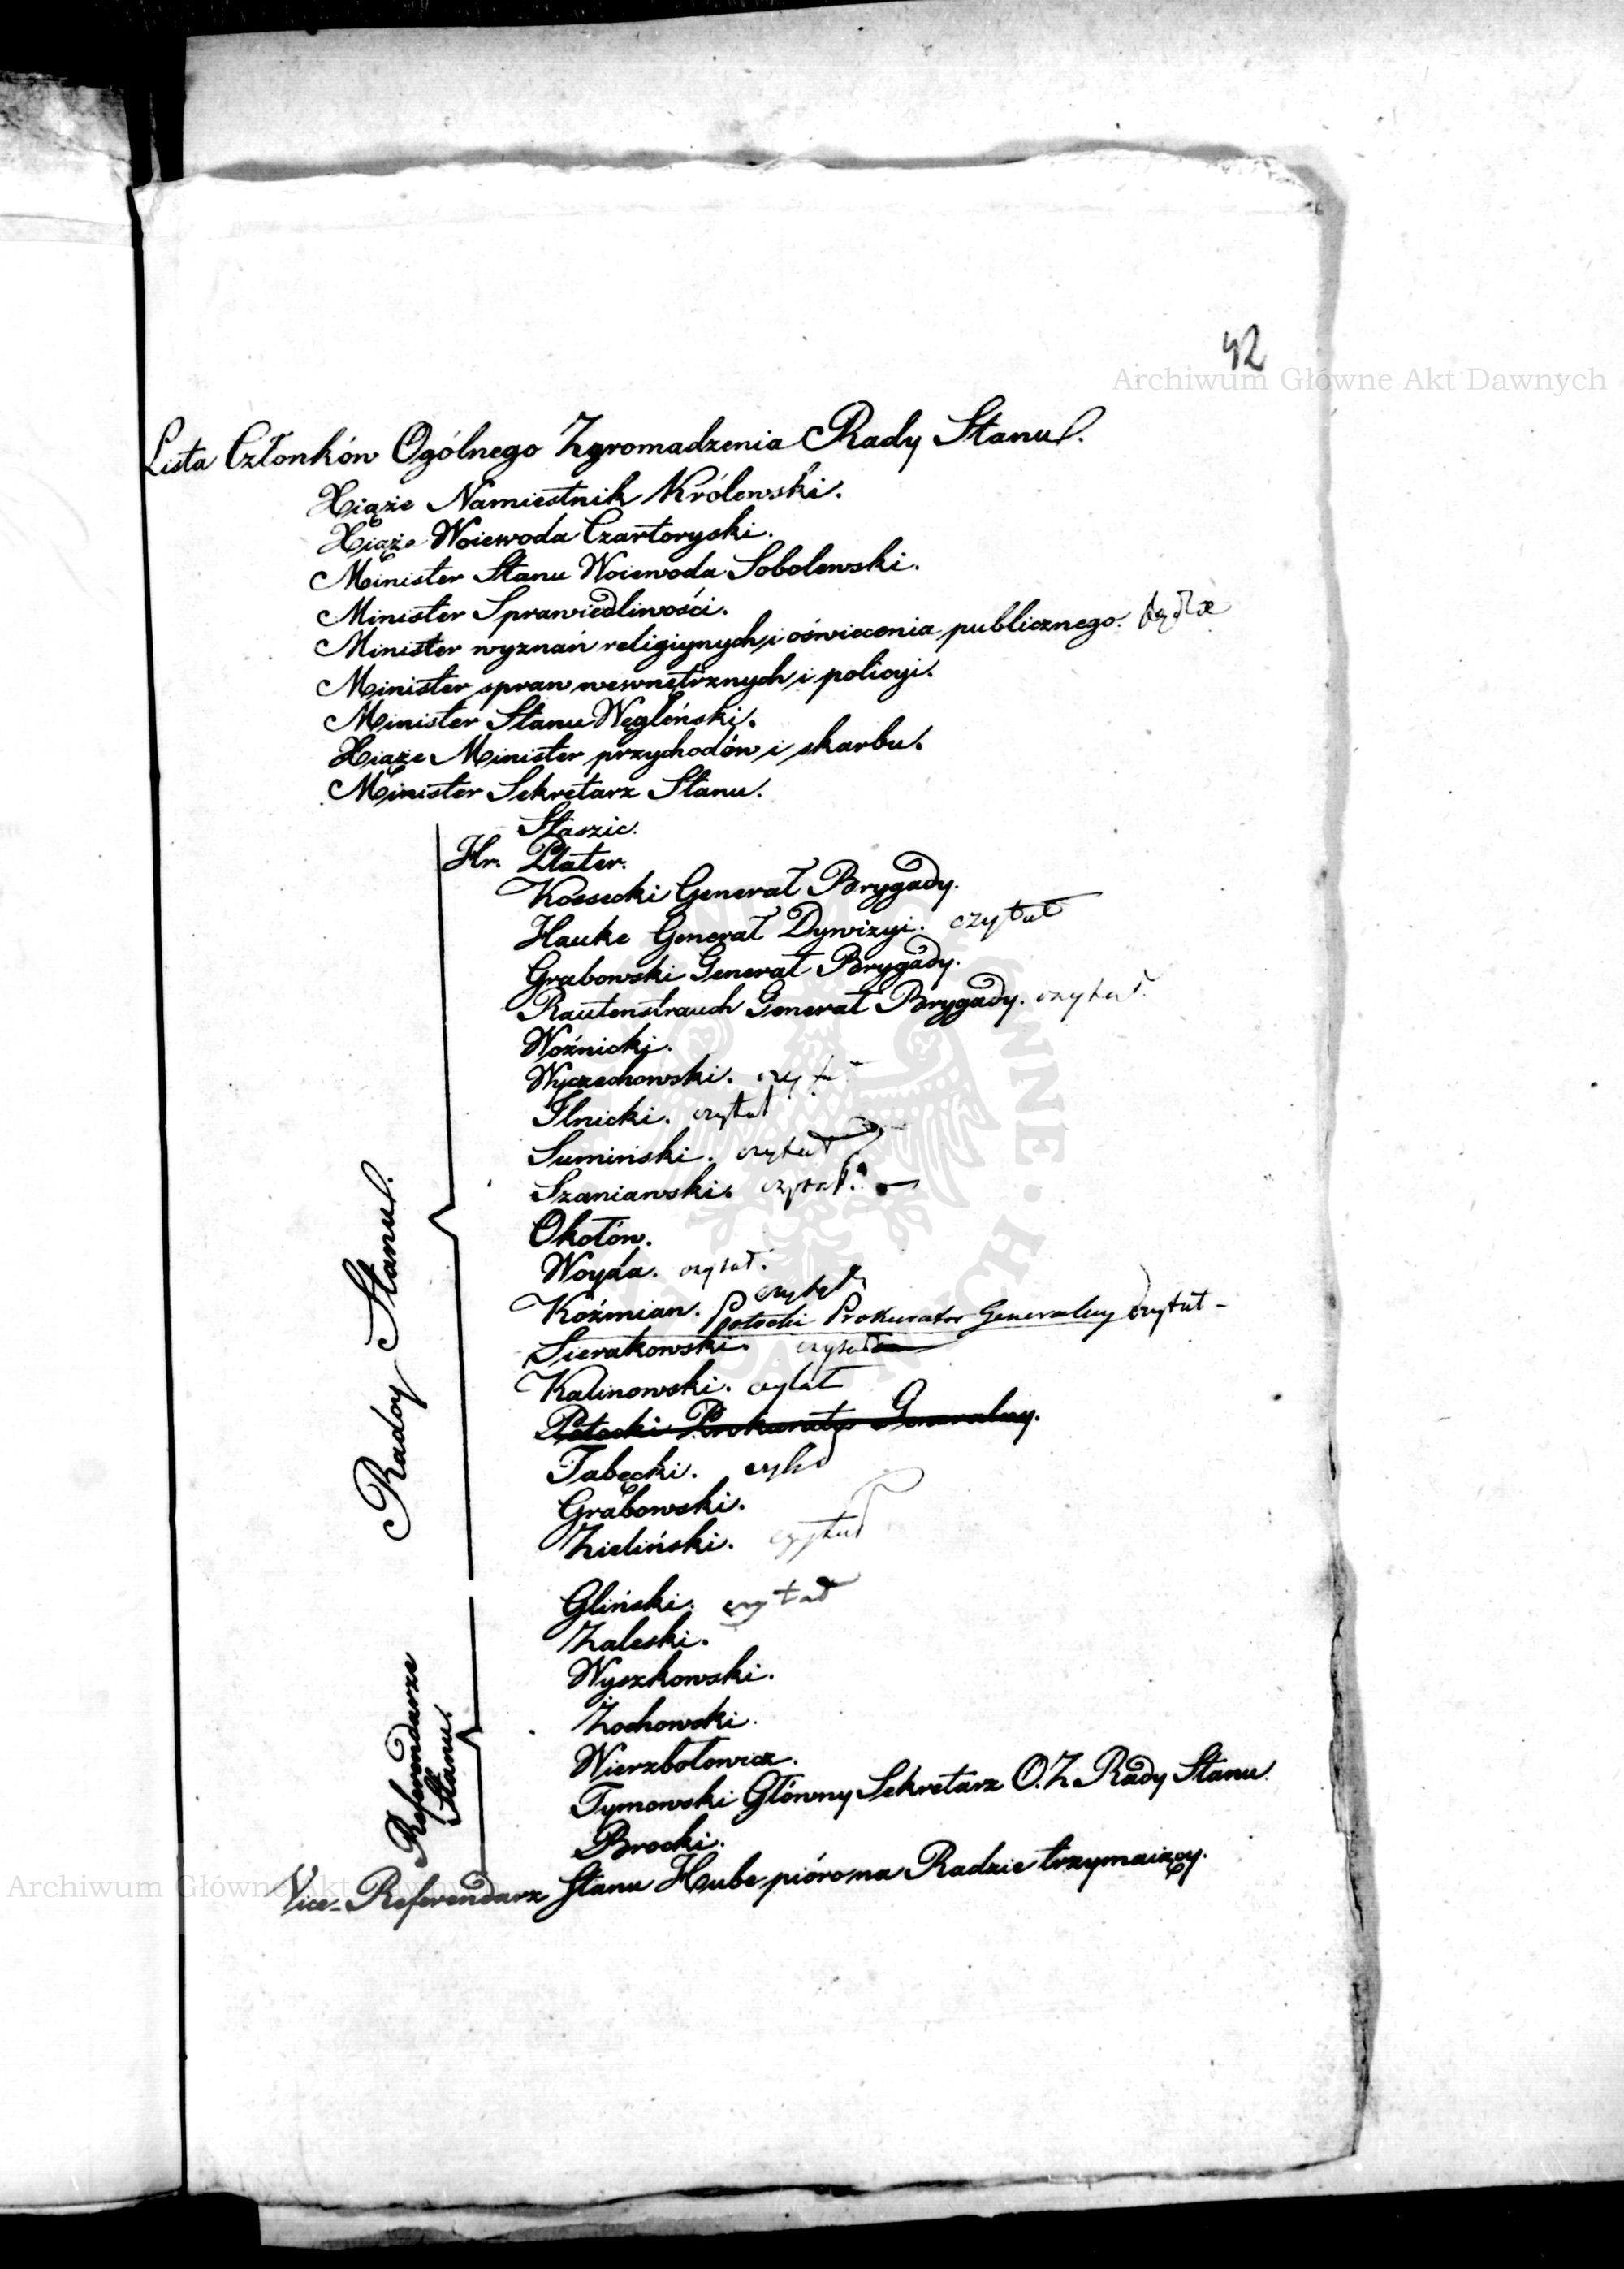 42
Archiwum Główne Akt Dawnych
Lista Członków Ogólnego Zgromadzenia Rady Stanu.
Xiąże Namiestnik Królewski.
Xiąże Woiewoda Czartoryski.
Minister Stanu Woiewoda Sobolewski.
Minister Sprawiedliwości.
Minister wyznań religiynych i oświecenia publicznego. będzie
Minister spraw wewnętrznych i policyi.
Minister Stanu Węgleński.
Xiąże Minister przychodów i skarbu.
Minister Sekretarz Stanu.
Radcy Stanu.
Staszic.
Hr. Plater.
Kossecki Generał Brygady.
Hauke Generał Dywizyi. czytał
Grabowski Generał Brygady.
Rautenstrauch Generał Brygady. czytał.
Woźnicki.
Wyczechowski. czytał
Ilnicki. czytał
Sumiński. czytał
Szaniawski. czytał.
Okołów.
Woyda. czytał.
Koźmian. czytał
Potocki Prokurator Generalny czytał -
Sierakowski. czytał
Kalinowski. czytał
Potocki Prokurator Generalny.
Tabęcki. czytał
Grabowski.
Zieliński. czytał
Referendarze
Stanu.
Gliński. czytał
Zaleski.
Wyszkowski.
Żochowski.
Wierzbołowicz.
Tymowski Główny Sekretarz O. Z. Rady Stanu.
Brocki.
Vice-Referendarz Stanu Hube pióro na Radzie trzymaiący.
Archiwum Główne Akt Dawnych